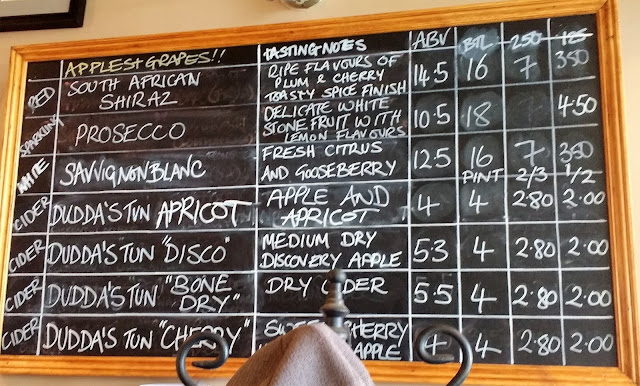 APPLES & GRAPES!! TASTING NOTES ABV BTL 250 125
RED SOUTH AFRICAN SHIRAZ RIPE FLAVOURS OF PLUM & CHERRY TOASTY SPICE FINISH 14.5 16 7 350
SPARKLING PROSECCO DELICATE WHITE STONE FRUIT WITH LEMON FLAVOURS 10.5 18 4.50
WHITE SAVVIGNON BLANC FRESH CITRUS AND GOOSEBERRY 12.5 16 7 350
PINT 2/3 1/2
CIDER DUDDA'S TUN APRICOT APPLE AND APRICOT 4 4 2.80 2.00
CIDER DUDDA'S TUN "DISCO" MEDIUM DRY DISCOVERY APPLE 5.3 4 2.80 2.00
CIDER DUDDA'S TUN "BONE DRY" DRY CIDER 5.5 4 2.80 2.00
CIDER DUDDA'S TUN "CHERRY" CHERRY APPLE 4 4 2.80 2.00